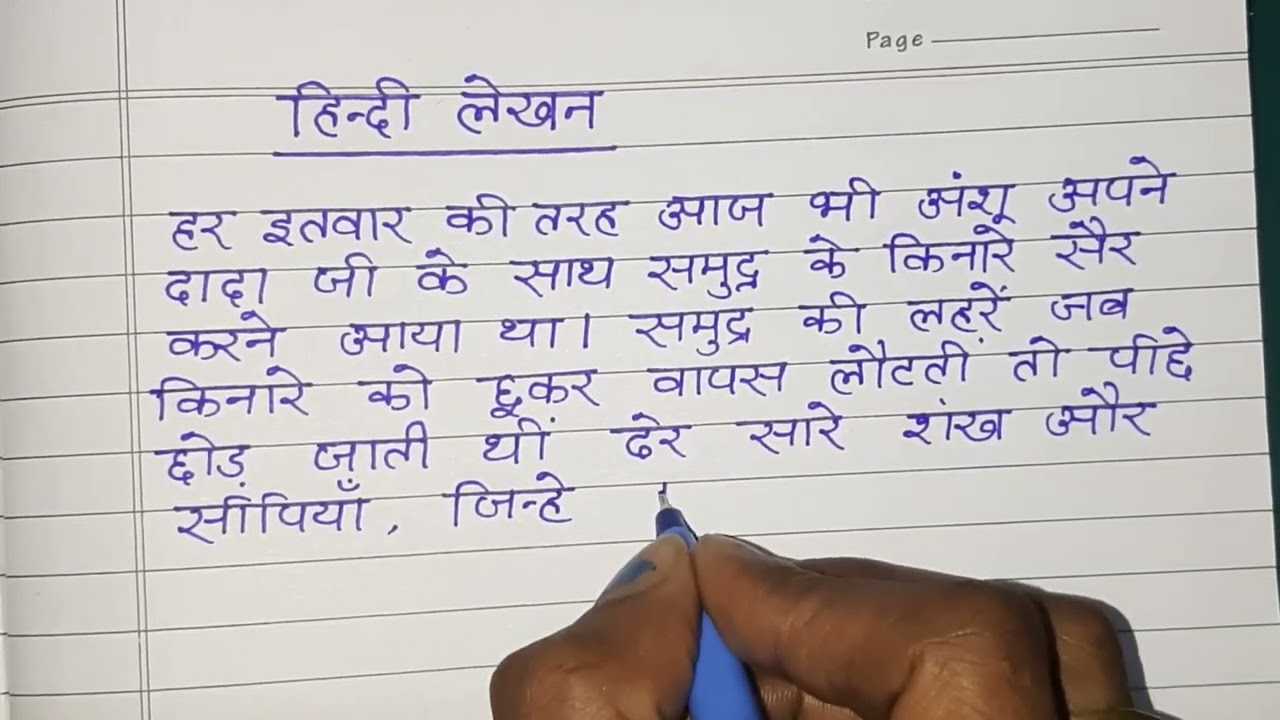 Page
हिन्दी लेखन
हर इतवार की तरह आज भी अंशू अपने
दादा जी के साथ समुद्र के किनारे सैर
करने आया था। समुद्र की लहरें जब
किनारे को छूकर वापस लौटतीं तो पीछे
छोड़ जाती थीं ढेर सारे शंख और
सीपियाँ, जिन्हे